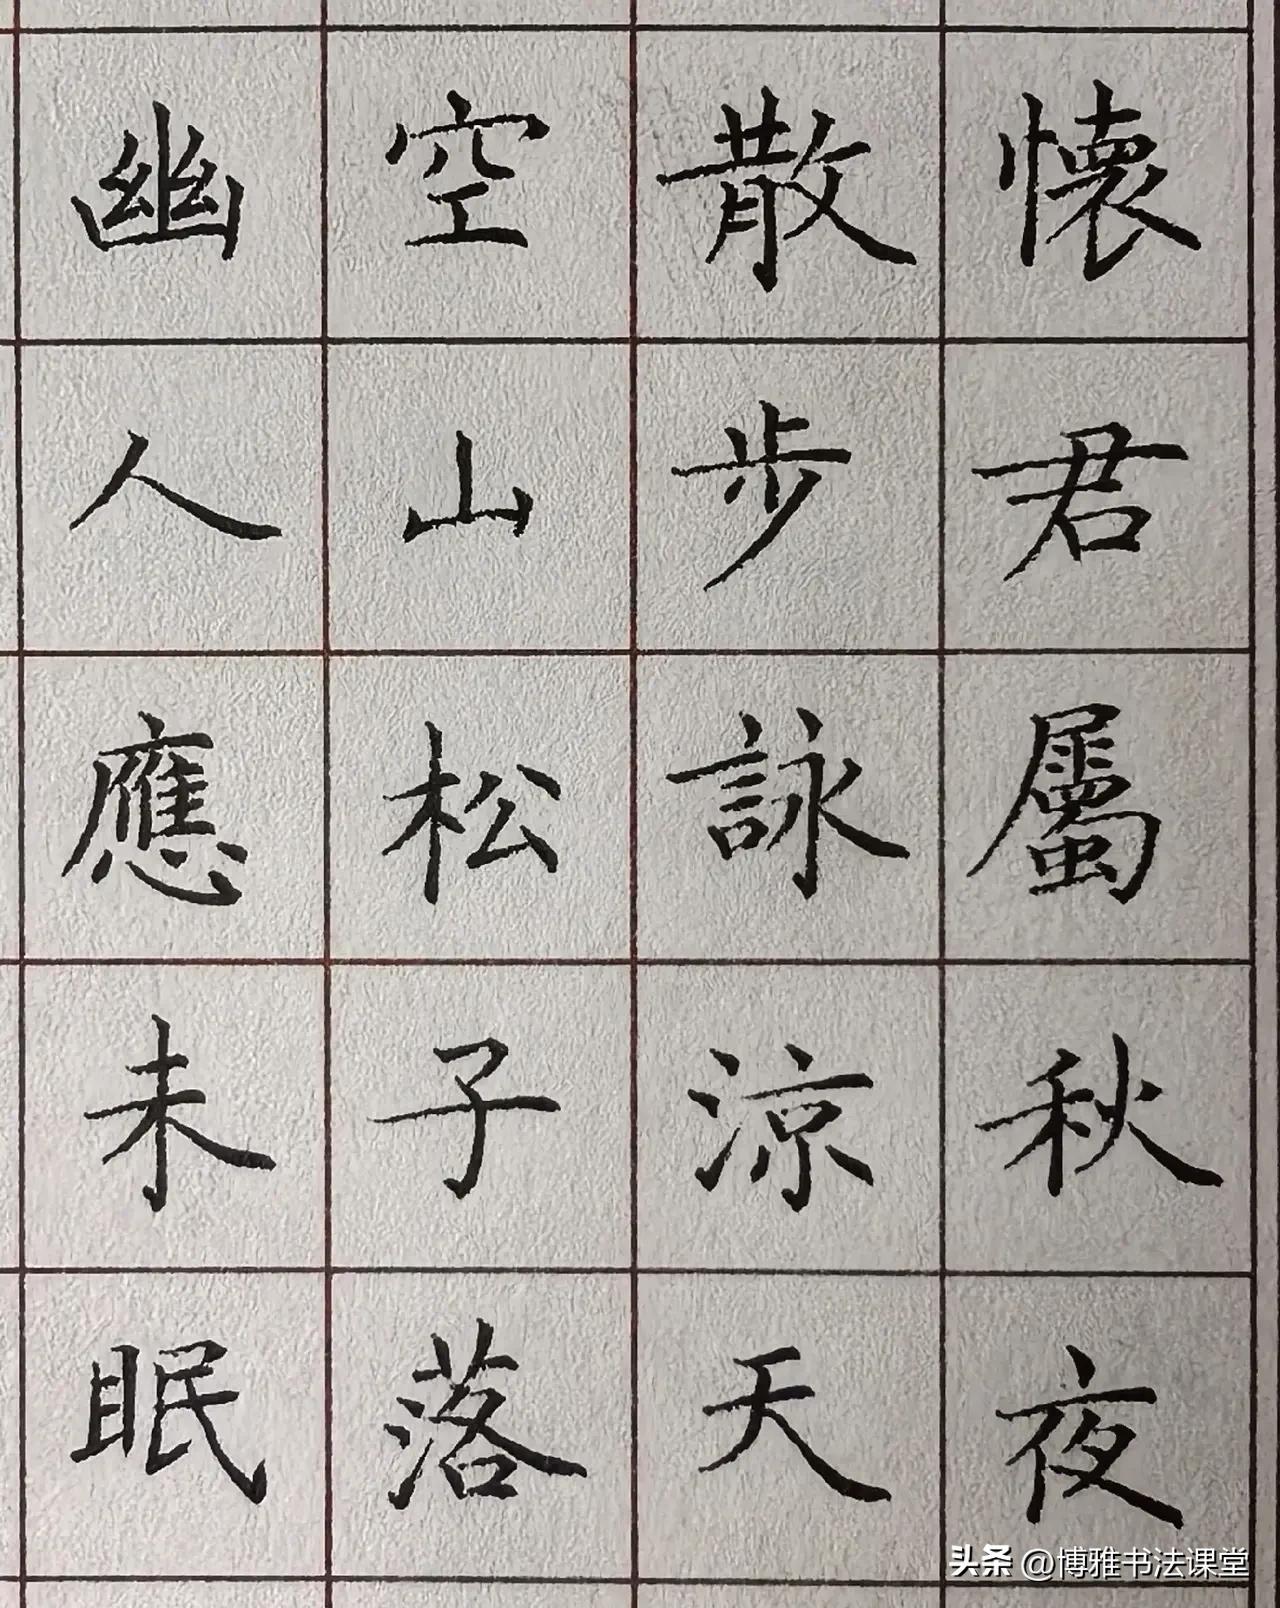 懷君屬秋夜
散步詠涼天
空山松子落
幽人應未眠
头条 @博雅书法课堂